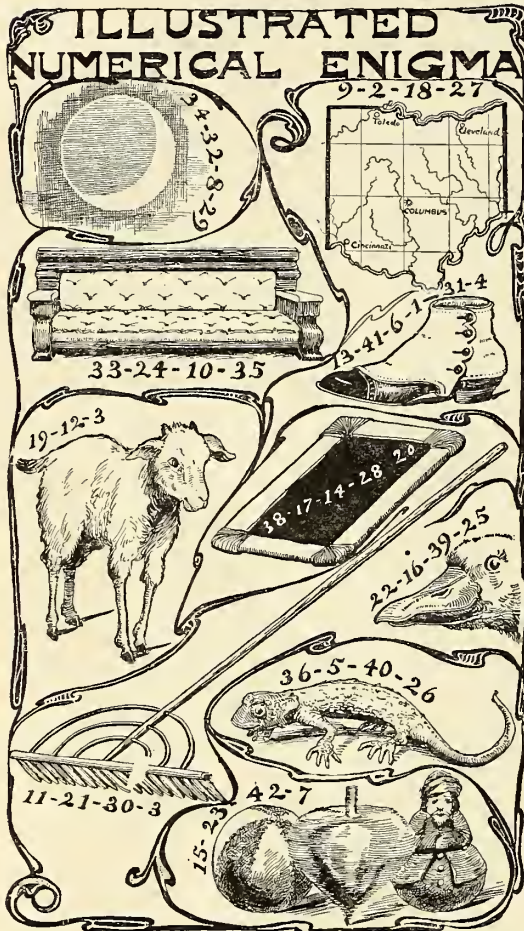 ILLUSTRATED
NUMERICAL ENIGMA
34-32-8-29
9-2-18-27
Toledo
Cleveland
COLUMBUS
Cincinnati
33-24-10-35
13-41-6-1-31-4
19-12-3
38-17-14-28 20
22-16-39-25
36-5-40-26
11-21-30-3
15-23 42-7